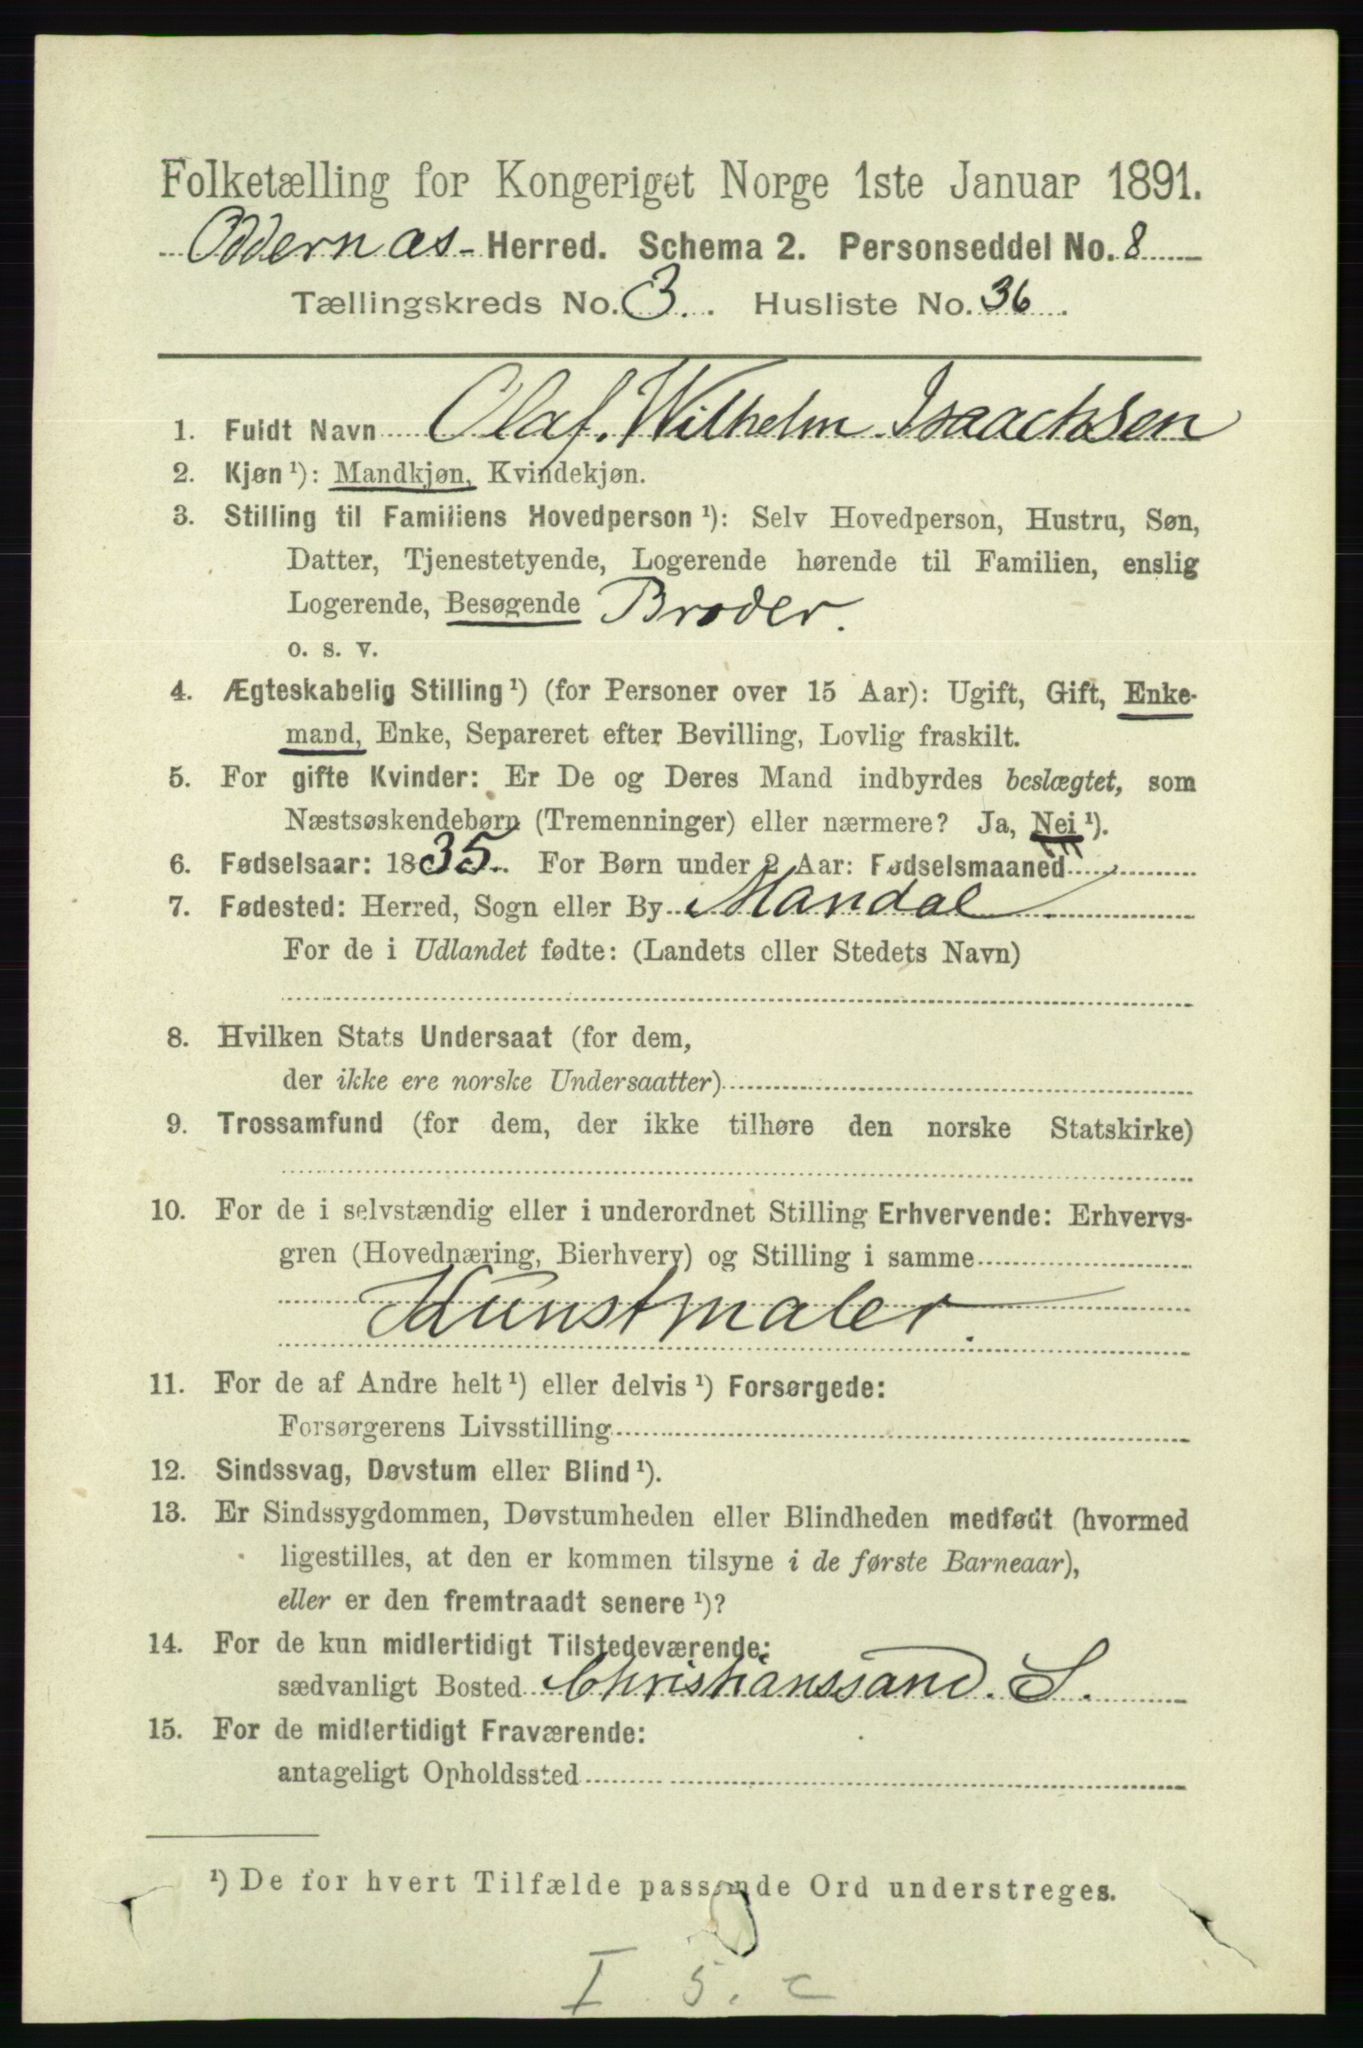 Folketælling for Kongeriget Norge 1ste Januar 1891.
Oddernas - Herred. Schema 2. Personseddel No. 8
Tællingskreds No. 3. Husliste No. 36.
1. Fuldt Navn Olaf. Wilhelm Isaachsen
2. Kjøn ¹): Mandkjøn, Kvindekjøn.
3. Stilling til Familiens Hovedperson ¹): Selv Hovedperson, Hustru, Søn,
Datter, Tjenestetyende, Logerende hørende til Familien, enslig
Logerende, Besøgende Broder.
o. s. v.
4. Ægteskabelig Stilling ¹) (for Personer over 15 Aar): Ugift, Gift, Enke-
mand, Enke, Separeret efter Bevilling, Lovlig fraskilt.
5. For gifte Kvinder: Er De og Deres Mand indbyrdes beslægtet, som
Næstsøskendebørn (Tremenninger) eller nærmere? Ja, Nei ¹).
6. Fødselsaar: 1835. For Børn under 2 Aar: Fødselsmaaned
7. Fødested: Herred, Sogn eller By Mandal
For de i Udlandet fødte: (Landets eller Stedets Navn)
8. Hvilken Stats Undersaat (for dem,
der ikke ere norske Undersaatter)
9. Trossamfund (for dem, der ikke tilhøre den norske Statskirke)
10. For de i selvstændig eller i underordnet Stilling Erhvervende: Erhvervs-
gren (Hovednæring, Bierhverv) og Stilling i samme
Kunstmaler.
11. For de af Andre helt ¹) eller delvis ¹) Forsørgede:
Forsørgerens Livsstilling
12. Sindssvag, Døvstum eller Blind ¹).
13. Er Sindssygdommen, Døvstumheden eller Blindheden medfødt (hvormed
ligestilles, at den er kommen tilsyne i de første Barneaar),
eller er den fremtraadt senere ¹)?
14. For de kun midlertidigt Tilstedeværende:
sædvanligt Bosted Christianssand. S.
15. For de midlertidigt Fraværende:
antageligt Opholdssted
¹) De for hvert Tilfælde passende Ord understreges.
I 5. c